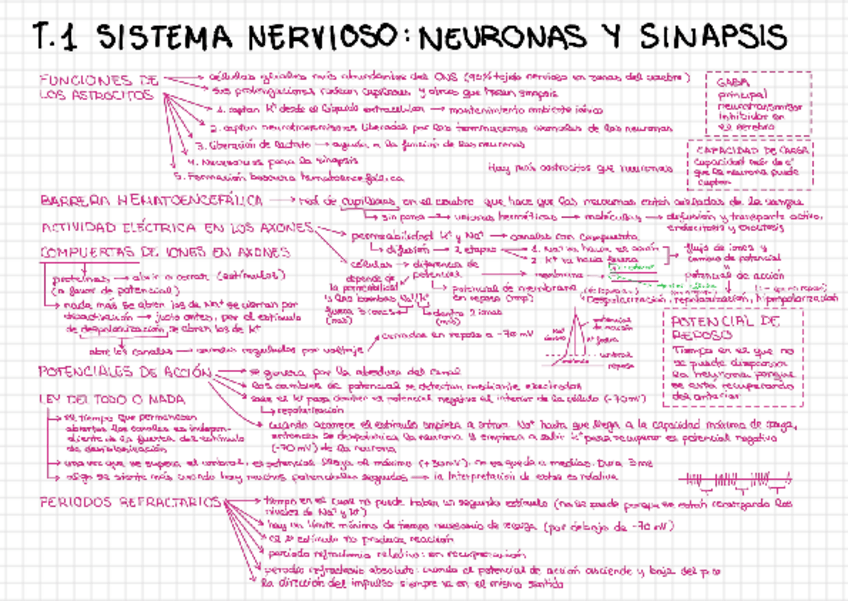 T.1 SISTEMA NERVIOSO: NEURONAS Y SINAPSIS
FUNCIONES DE LOS ASTROCITOS
células gliales más abundantes del (90% tejido nervioso en zonas del cerebro)
sus prolongaciones rodean capilares y otros que hacen sinapsis
1. captan K⁺ desde el líquido extracelular → mantenimiento ambiente iónico
2. captan neurotransmisores liberados por las terminaciones axonales de las neuronas
3. liberación de lactato → ayuda a la función de las neuronas
4. Necesarios para la sinapsis
5. Formación barrera hematoencefálica
Hay más astrocitos que neuronas
GABA
principal
neurotransmisor
inhibidor en
el cerebro
CAPACIDAD DE CARGA
capacidad máx de
que la neurona puede
captar
BARRERA HEMATOENCEFÁLICA → red de capilares en el cerebro que hace que las neuronas estén aisladas de la sangre
sin poros → uniones herméticas → moléculas → difusión y transporte activo,
endocitosis y exocitosis
ACTIVIDAD ELÉCTRICA EN LOS AXONES
permeabilidad K⁺ y Na⁺ → canales con compuerta
difusión → 2 etapas
1. Na⁺ va hacia el axón
2. K⁺ va hacia fuera
flujo de iones y
cambio de potencial
potencial de acción
células → diferencia de
potencial
membrana
depende de
la permeabilidad
y las bombas
fuera 3 iones
(más)
dentro 2 iones
potencial de membrana
en reposo (rmp)
Despolarización, repolarización, hiperpolarización
COMPUERTAS DE IONES EN AXONES
proteínas → abrir o cerrar (estímulos)
(a favor de potencial)
nada más se abren los de Na⁺ se cierran por
desactivación → justo antes, por el estímulo
de despolarización, se abren los de K⁺
abre los canales → canales regulados por voltaje
cerrados en reposo a -70 mV
potenciales
de acción
umbral
reposo
POTENCIAL DE
REPOSO
Tiempo en el que no
se puede disparar
la neurona porque
se está recuperando
del anterior
POTENCIALES DE ACCIÓN
se genera por la abertura del canal
los cambios de potencial se detectan mediante electrodos
sale el K⁺ para cambiar el potencial negativo al interior de la célula (-70mV)
repolarización
cuando aparece el estímulo empieza a entrar Na⁺ hasta que llega a la capacidad máxima de carga,
entonces se despolariza la neurona y empieza a salir K⁺ para recuperar el potencial negativo
(-70 mV) de la neurona
LEY DEL TODO O NADA
el tiempo que permanecen
abiertos los canales es indepen-
diente de la fuerza del estímulo
de despolarización
una vez que se supera el umbral, el potencial llega al máximo (+30mV), no se queda a medias. Dura 3ms
algo se siente más cuando hay muchos potenciales seguidos → la interpretación de estos es relativa
PERIODOS REFRACTARIOS
tiempo en el cual no puede haber un segundo estímulo (no se puede porque se están recargando los
niveles de Na⁺ y K⁺)
hay un límite mínimo de tiempo necesario de recarga (por debajo de -70 mV)
el 2º estímulo no produce reacción
periodo refractario relativo: en recuperación
periodo refractario absoluto: cuando el potencial de acción asciende y baja del pico
la dirección del impulso siempre va en el mismo sentido